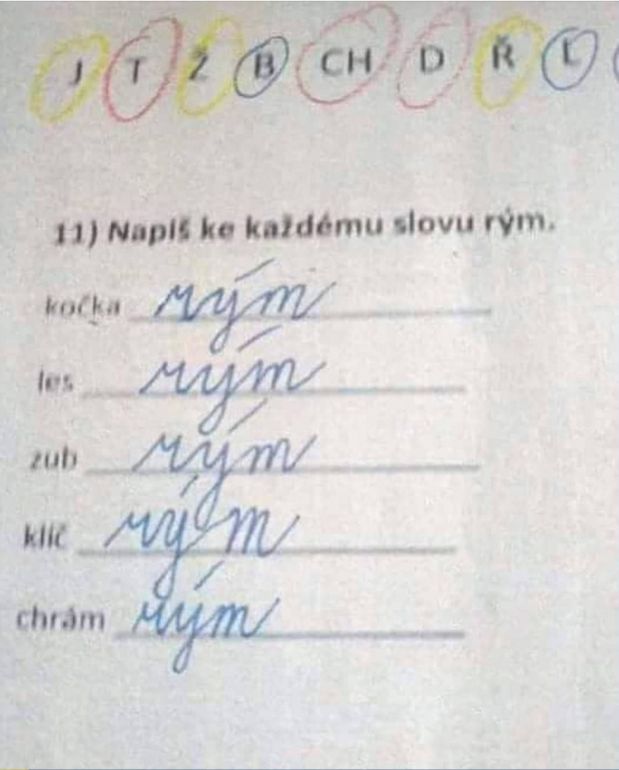 J T Ž B CH D Ř L
11) Napiš ke každému slovu rým.
kočka rým
les rým
zub rým
klíč rým
chrám rým